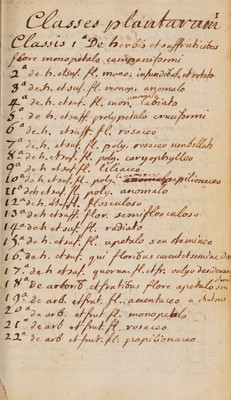 1
Classes plantarum
Classis 1ª De herbis et suffruticibus
flore monopetalo campaniformi
2ª de h. et suf. fl. mono. infundibul. et rotato
3ª de h. et suf. fl. monop. anomalo
4ª de h. et suf. fl. mon. labiato
5ª de h. et suff polypetalo cruciformi
6ª de h. et suff. fl. rosaceo
7ª de h. et suf. fl. poly. rosaceo umbellato
8ª de h. et suf. fl. poly. caryophylleo
9ª de h. et suf. fl. liliaceo
10ª de h. et suf. fl. poly. papilionaceo
11ª de h et suf. fl. poly. anomalo
12ª de h. et suff. flosculoso
13ª de h et suff. flor. semiflosculoso
14ª de h et suf. fl. radiato
15ª de h. et suf. fl. apetalo seu stamineo
16. de h. et suf. qui floribus carent et semine
17ª de h et suf. quorum fl. et fr. vulgo desideran
18ª De arborib. et frutibus flore apetalo
19ª de arb. et frut. fl. amentaceo
20ª de arb. et frut fl. monopetalo
21ª de arb et frut fl. rosaceo
22ª de arb et frut. fl. papilionaceo